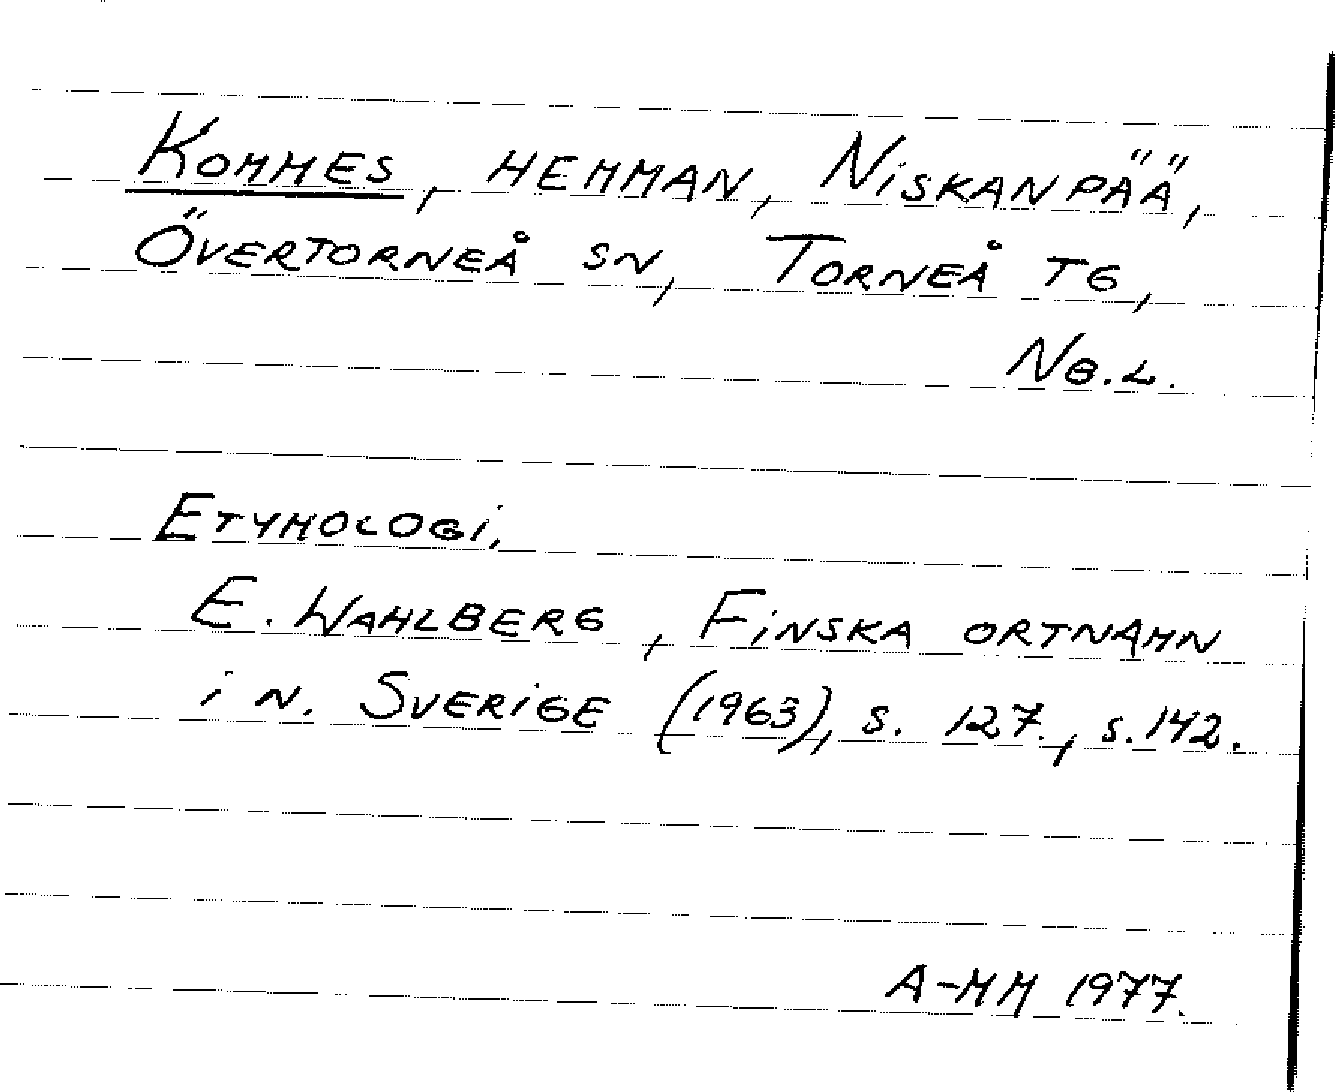 KOMMES, HEMMAN, NISKANPÄÄ,
ÖVERTORNEÅ SN, TORNEÅ TG,
NB.L.
ETYMOLOGI,
E. WAHLBERG, FINSKA ORTNAMN
I N. SVERIGE (1963), S. 127., S. 142.
A-MM 1977.